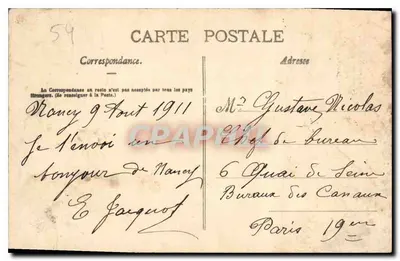 54
CARTE POSTALE
Correspondance.
Adresse
La Correspondance au recto n'est pas acceptée par tous les pays
étrangers. (Se renseigner à la Poste.)
Nancy 9 Aout 1911
Je t'envoi un
bonjour de Nancy
E Jacquot
Mr Gustave Nicolas
Chef de bureau
6 Quai de Seine
Buraux des Canaux
Paris 19em
CPARAMA